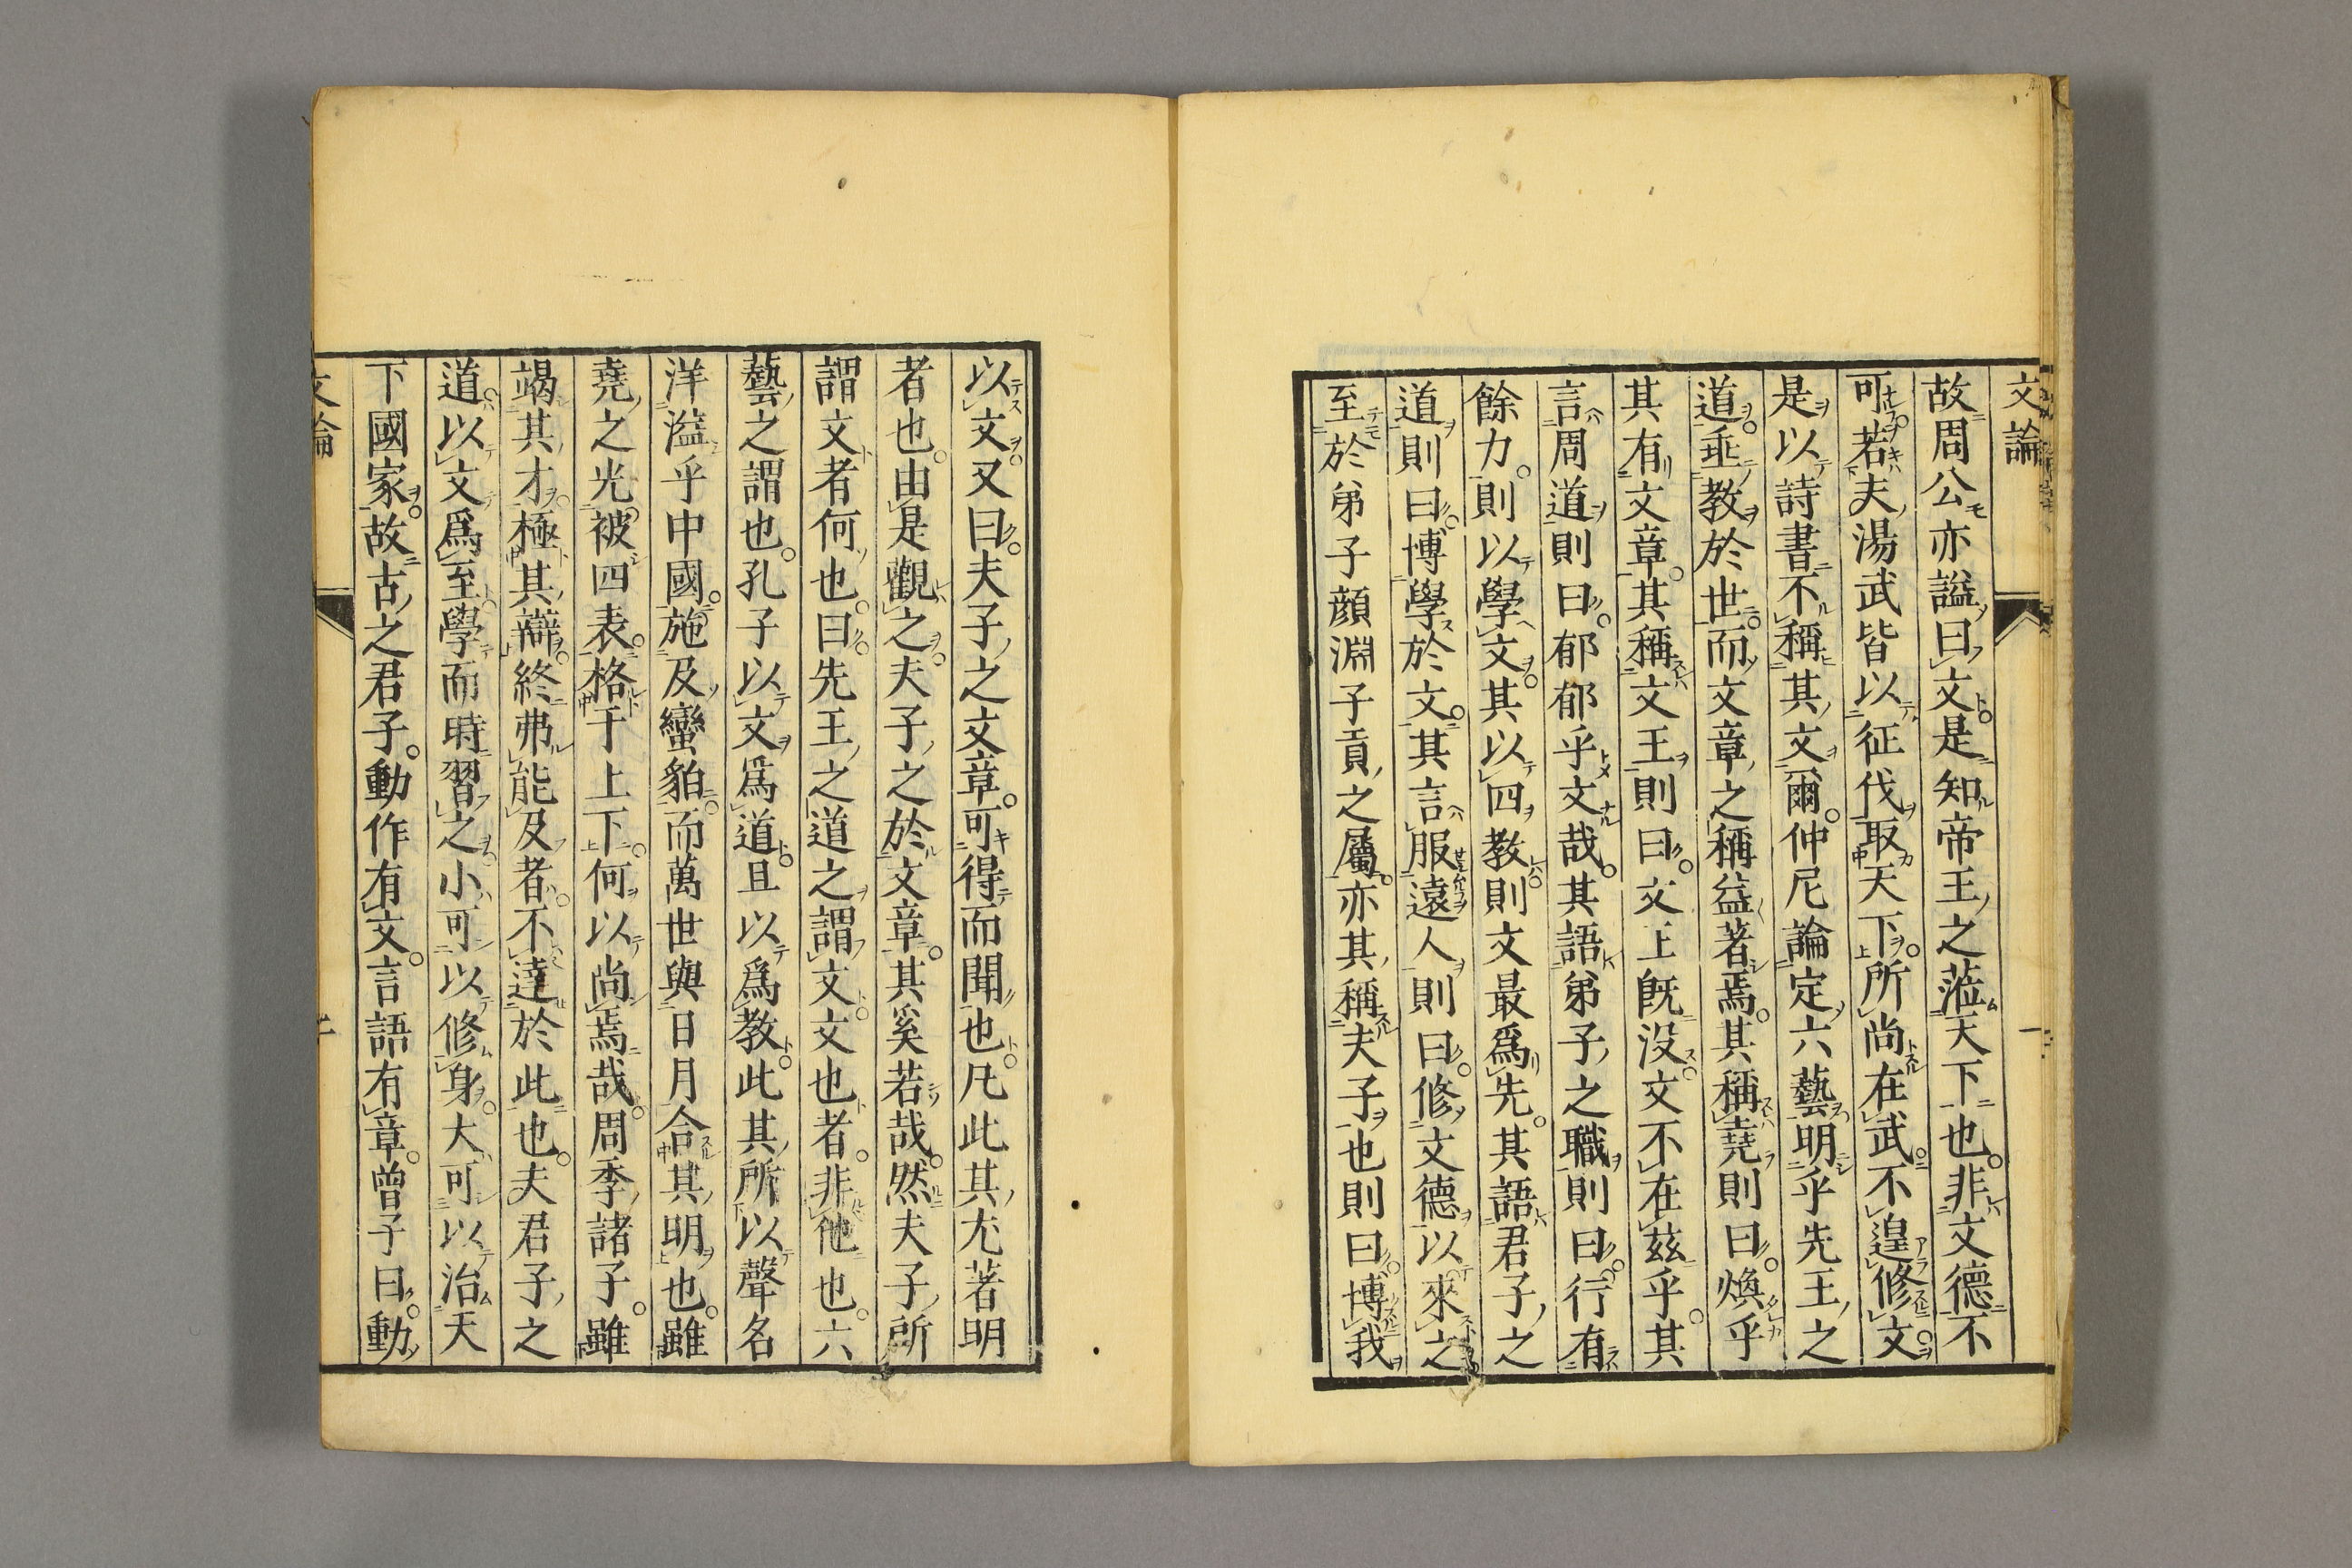 文論
一
故周公亦諡曰文。是知帝王之蒞天下也。非文德不
可。若夫湯武皆以征伐取天下。所尚在武。不遑修文。
是以詩書不稱其文爾。仲尼論定六藝明乎先王之
道。垂教於世。而文章之稱益著焉。其稱堯則曰。煥乎
其有文章。其稱文王則曰。文王既没。文不在茲乎。其
言周道則曰。郁郁乎文哉。其語弟子之職則曰。行有
餘力。則以學文。其以四教。則文最爲先。其語君子之
道則曰。博學於文。其言服遠人則曰。修文德以來之
至於弟子顔淵子貢之屬。亦其稱夫子也則曰。博我
以文。又曰。夫子之文章。可得而聞也。凡此其尤著明
者也。由是觀之。夫子之於文章。其奚若哉。然夫子所
謂文者何也。曰。先王之道之謂文。文也者。非他也。六
藝之謂也。孔子以文爲道。且以爲教。此其所以聲名
洋溢乎中國。施及蠻貊。而萬世與日月合其明也。雖
堯之光被四表。格于上下。何以尚焉哉。周季諸子。雖
竭其才。極其辯。終弗能及者。不達於此也。夫君子之
道。以文爲至。學而時習之。小可以修身。大可以治天
下國家。故古之君子。動作有文。言語有章。曾子曰。動
文論